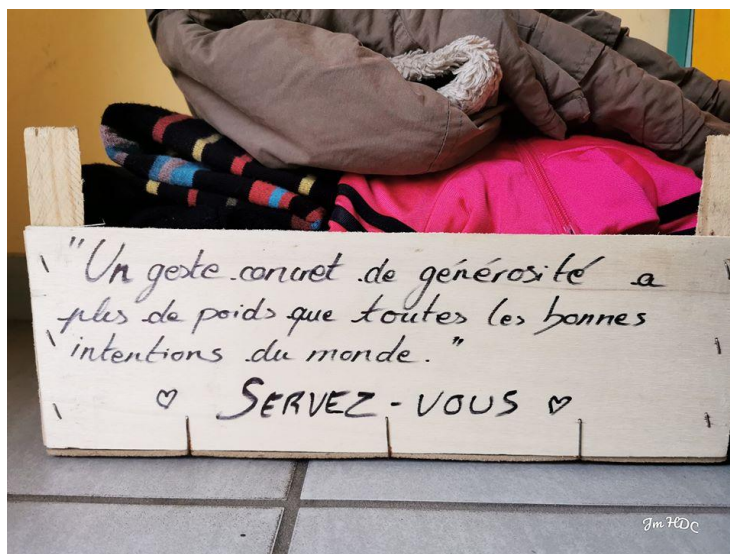 "Un geste concret de générosité a
plus de poids que toutes les bonnes
intentions du monde."
♡ SERVEZ-VOUS ♡
Jm HDC